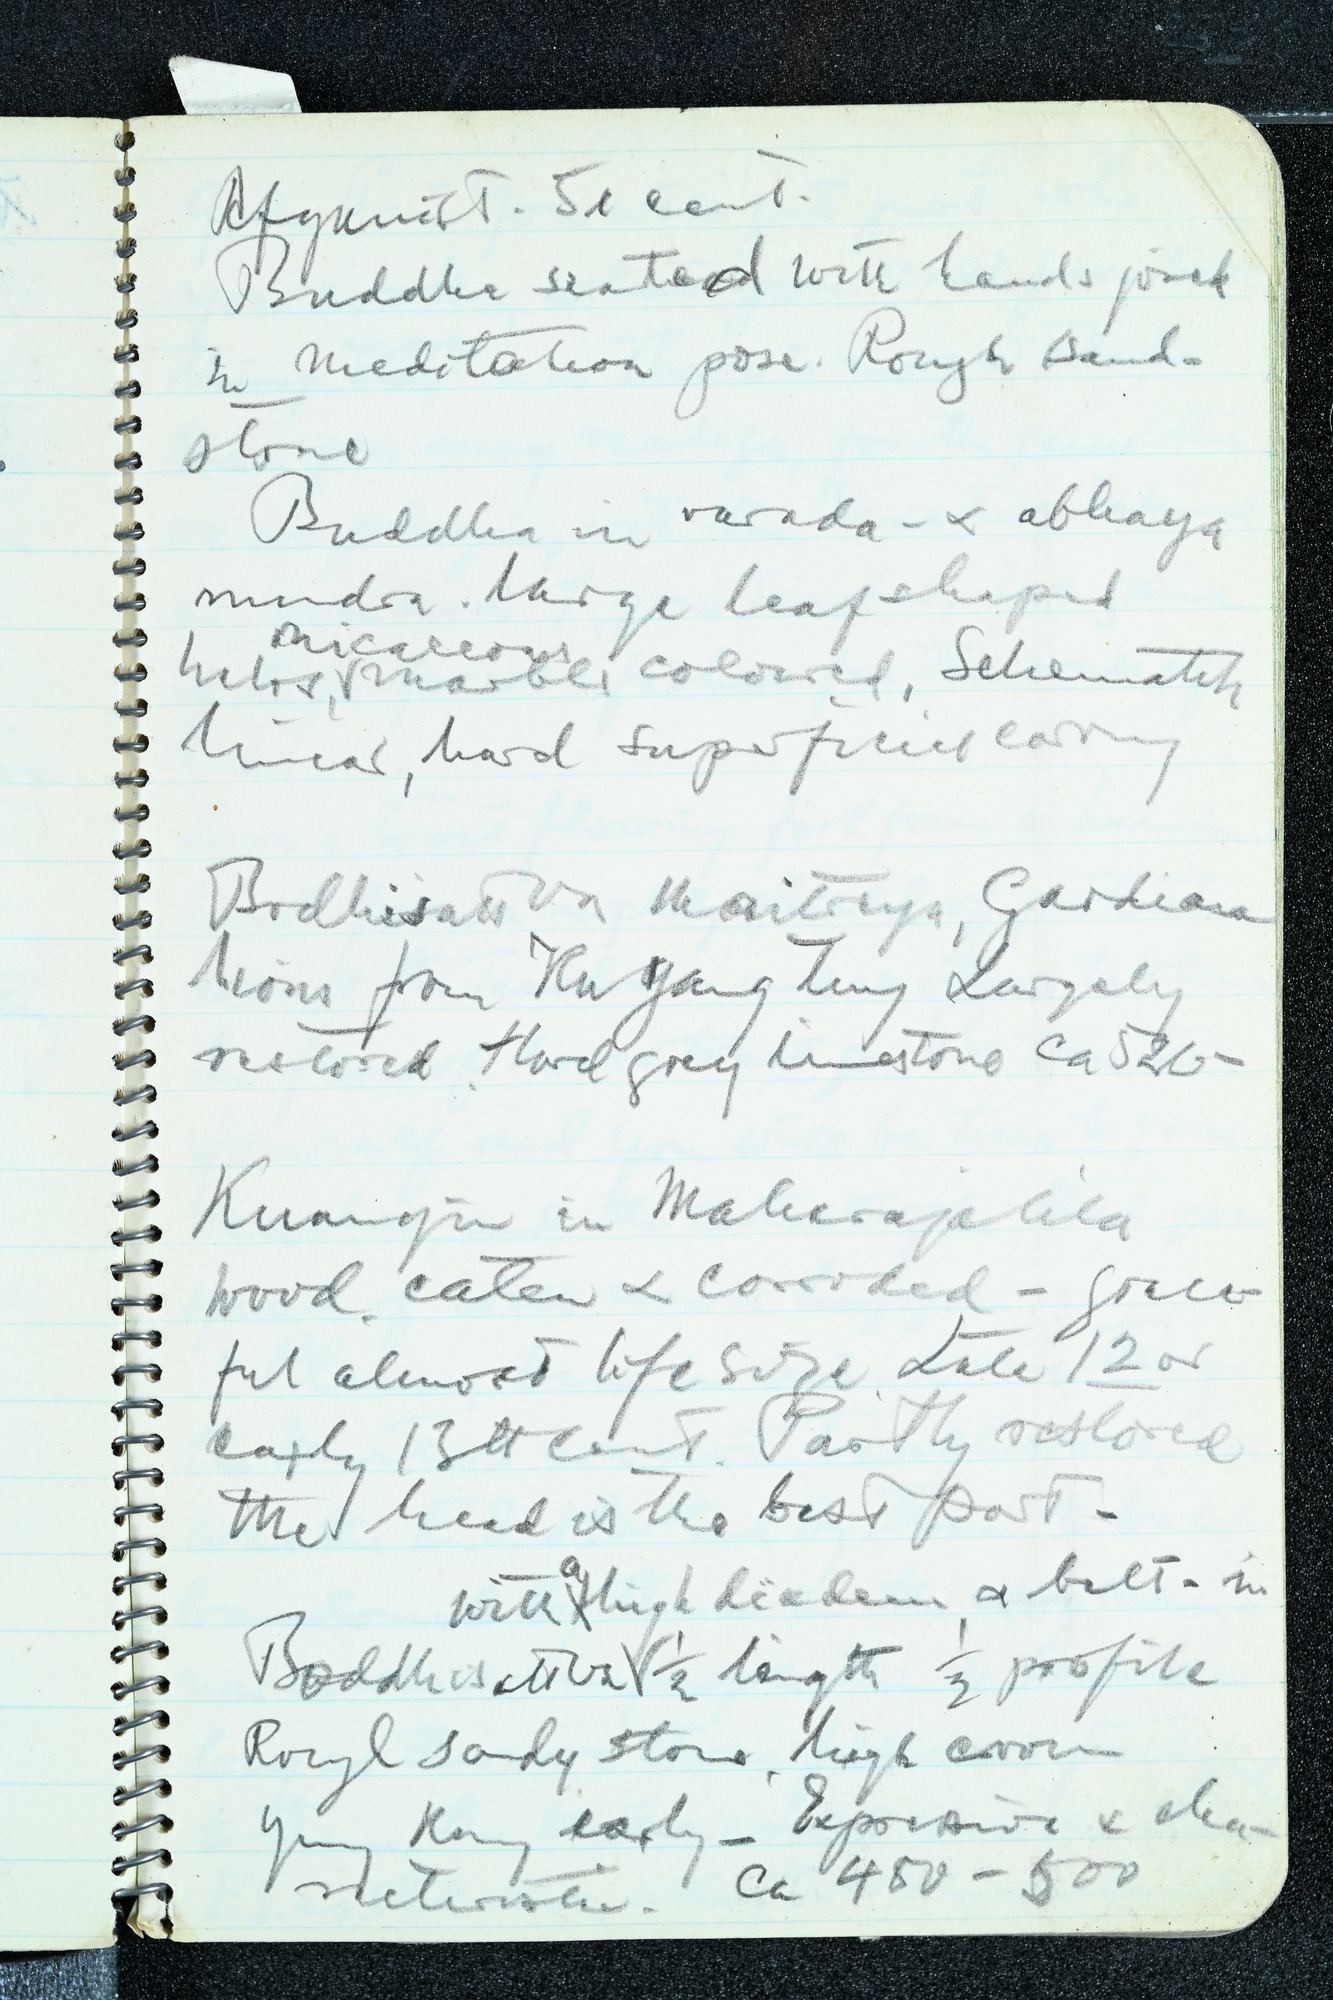 Afganist. 5e cent.
Buddha seated with hands joined
in meditation pose. Rough sand-
stone
Buddha in varada - & abhaya
mudra. Large leafshaped
halos, micaceous marble coloured, Schematic,
linear, hard superficial carving
Bodhisattva Maitreya, Gardian
lions from Ku Yang tung Largely
restored. Hard grey limestone Ca 520-
Kuanyin in Maharajalila
wood. eaten & corroded - grace-
ful almost life size Late 12 or
early 13th cent. Partly restored
the head is the best part -
with a high diadem & belt - in
Boddhisattva ½ length ½ profile
Rough sandy stone, high crown
Yun Kang early - Expressive & cha-
racteristic. Ca 480 - 500